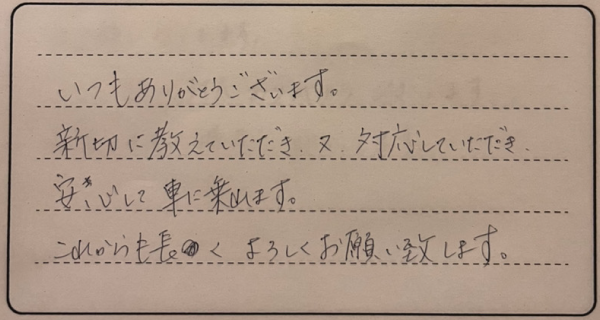 いつもありがとうございます。
新切に教えていただき、又、対応していただき、
安心して車に乗れます。
これからも長く よろしくお願い致します。